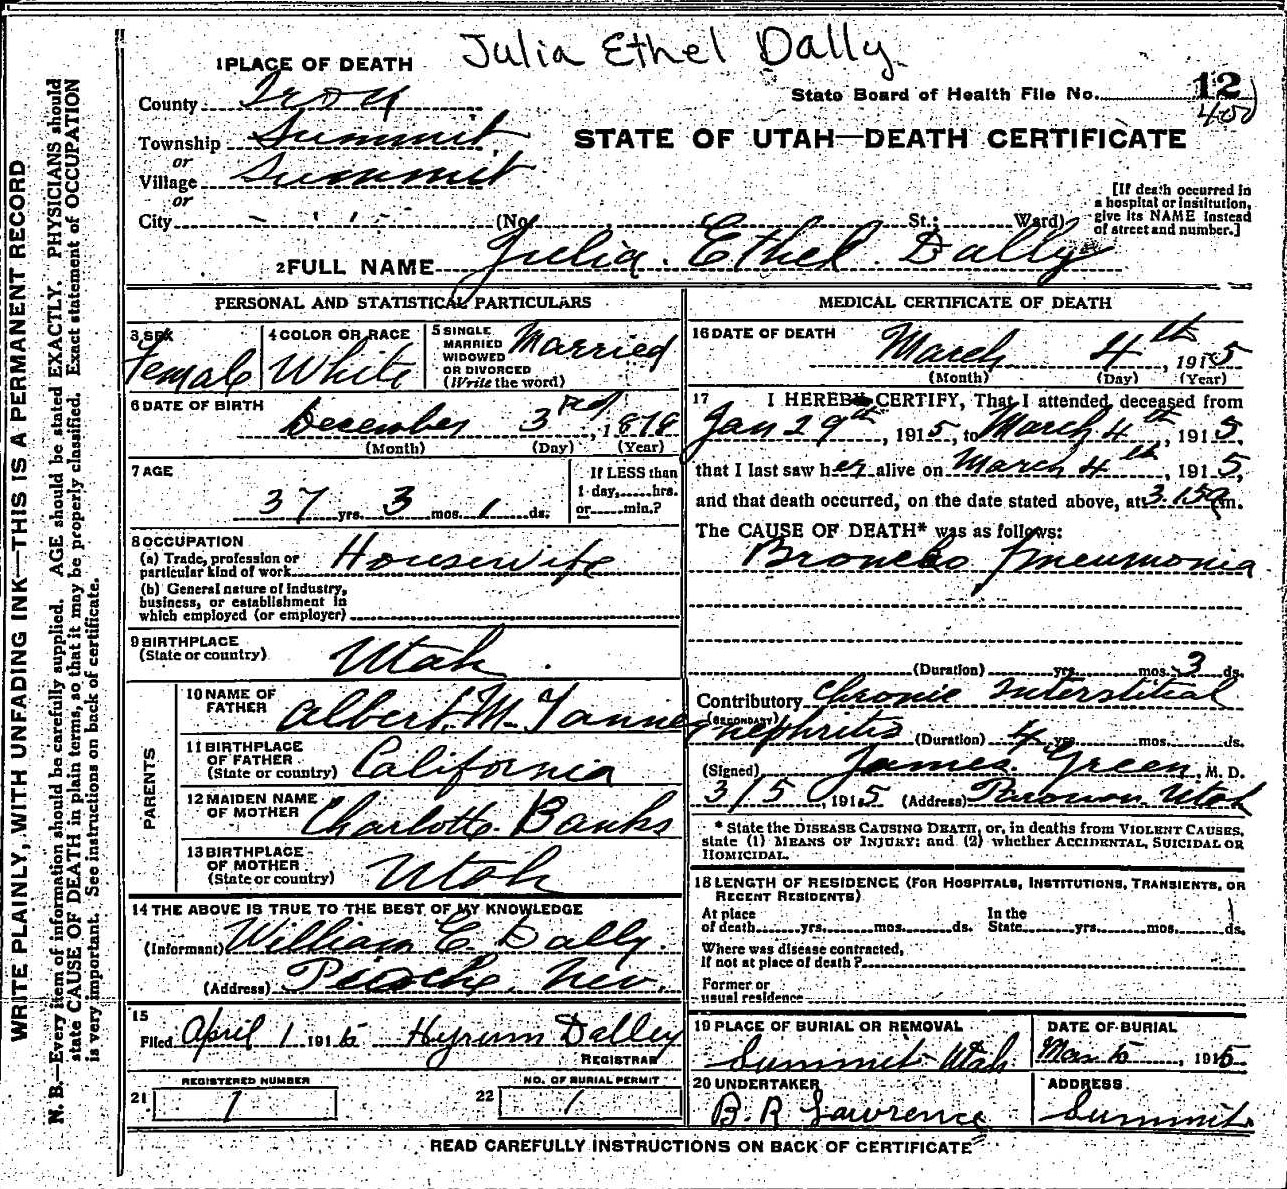 Julia Ethel Dally
1 PLACE OF DEATH
12
State Board of Health File No.
400
County Iron
Township Summit
or
Village Summit
or
City
STATE OF UTAH—DEATH CERTIFICATE
(No. St.; Ward)
[If death occurred in
a hospital or institution,
give its NAME instead
of street and number.]
2 FULL NAME Julia Ethel Dally
PERSONAL AND STATISTICAL PARTICULARS
3 SEX
Female
4 COLOR OR RACE
White
5 SINGLE
MARRIED
WIDOWED
OR DIVORCED
(Write the word)
Married
6 DATE OF BIRTH
December 3rd, 1878
(Month) (Day) (Year)
7 AGE
37 yrs. 3 mos. 1 ds.
If LESS than
1 day,......hrs.
or......min.?
8 OCCUPATION
(a) Trade, profession or
particular kind of work Housewife
(b) General nature of industry,
business, or establishment in
which employed (or employer)
9 BIRTHPLACE
(State or country) Utah
PARENTS
10 NAME OF
FATHER Albert M. Tanner
11 BIRTHPLACE
OF FATHER
(State or country) California
12 MAIDEN NAME
OF MOTHER Charlotte Banks
13 BIRTHPLACE
OF MOTHER
(State or country) Utah
14 THE ABOVE IS TRUE TO THE BEST OF MY KNOWLEDGE
(Informant) William E. Dally.
(Address) Pioche, Nev.
15
Filed April 1 1915 Hyrum Dalley
REGISTRAR
REGISTERED NUMBER
21 1
NO. OF BURIAL PERMIT
22 1
MEDICAL CERTIFICATE OF DEATH
16 DATE OF DEATH
March 4th, 1915
(Month) (Day) (Year)
17 I HEREBY CERTIFY, That I attended deceased from
Jan 29th, 1915, to March 4th, 1915,
that I last saw her alive on March 4th, 1915,
and that death occurred, on the date stated above, at 3.15 a m.
The CAUSE OF DEATH* was as follows:
Broncho pneumonia
(Duration) yrs. mos. 3 ds.
Contributory Chronic Interstitial
(SECONDARY)
nephritis (Duration) 4 yrs. mos. ds.
(Signed) James Green, M. D.
3/5, 1915 (Address) Parowan Utah
* State the DISEASE CAUSING DEATH, or, in deaths from VIOLENT CAUSES,
state (1) MEANS OF INJURY; and (2) whether ACCIDENTAL, SUICIDAL OR
HOMICIDAL.
18 LENGTH OF RESIDENCE (FOR HOSPITALS, INSTITUTIONS, TRANSIENTS, OR
RECENT RESIDENTS)
At place
of death......yrs......mos......ds.
In the
State......yrs......mos......ds.
Where was disease contracted,
If not at place of death?
Former or
usual residence
19 PLACE OF BURIAL OR REMOVAL
Summit Utah
DATE OF BURIAL
Mar 5, 1915
20 UNDERTAKER
B. R. Lawrence
ADDRESS
Summit
READ CAREFULLY INSTRUCTIONS ON BACK OF CERTIFICATE
WRITE PLAINLY, WITH UNFADING INK—THIS IS A PERMANENT RECORD
N. B.—Every item of information should be carefully supplied. AGE should be stated EXACTLY. PHYSICIANS should
state CAUSE OF DEATH in plain terms, so that it may be properly classified. Exact statement of OCCUPATION
is very important. See instructions on back of certificate.